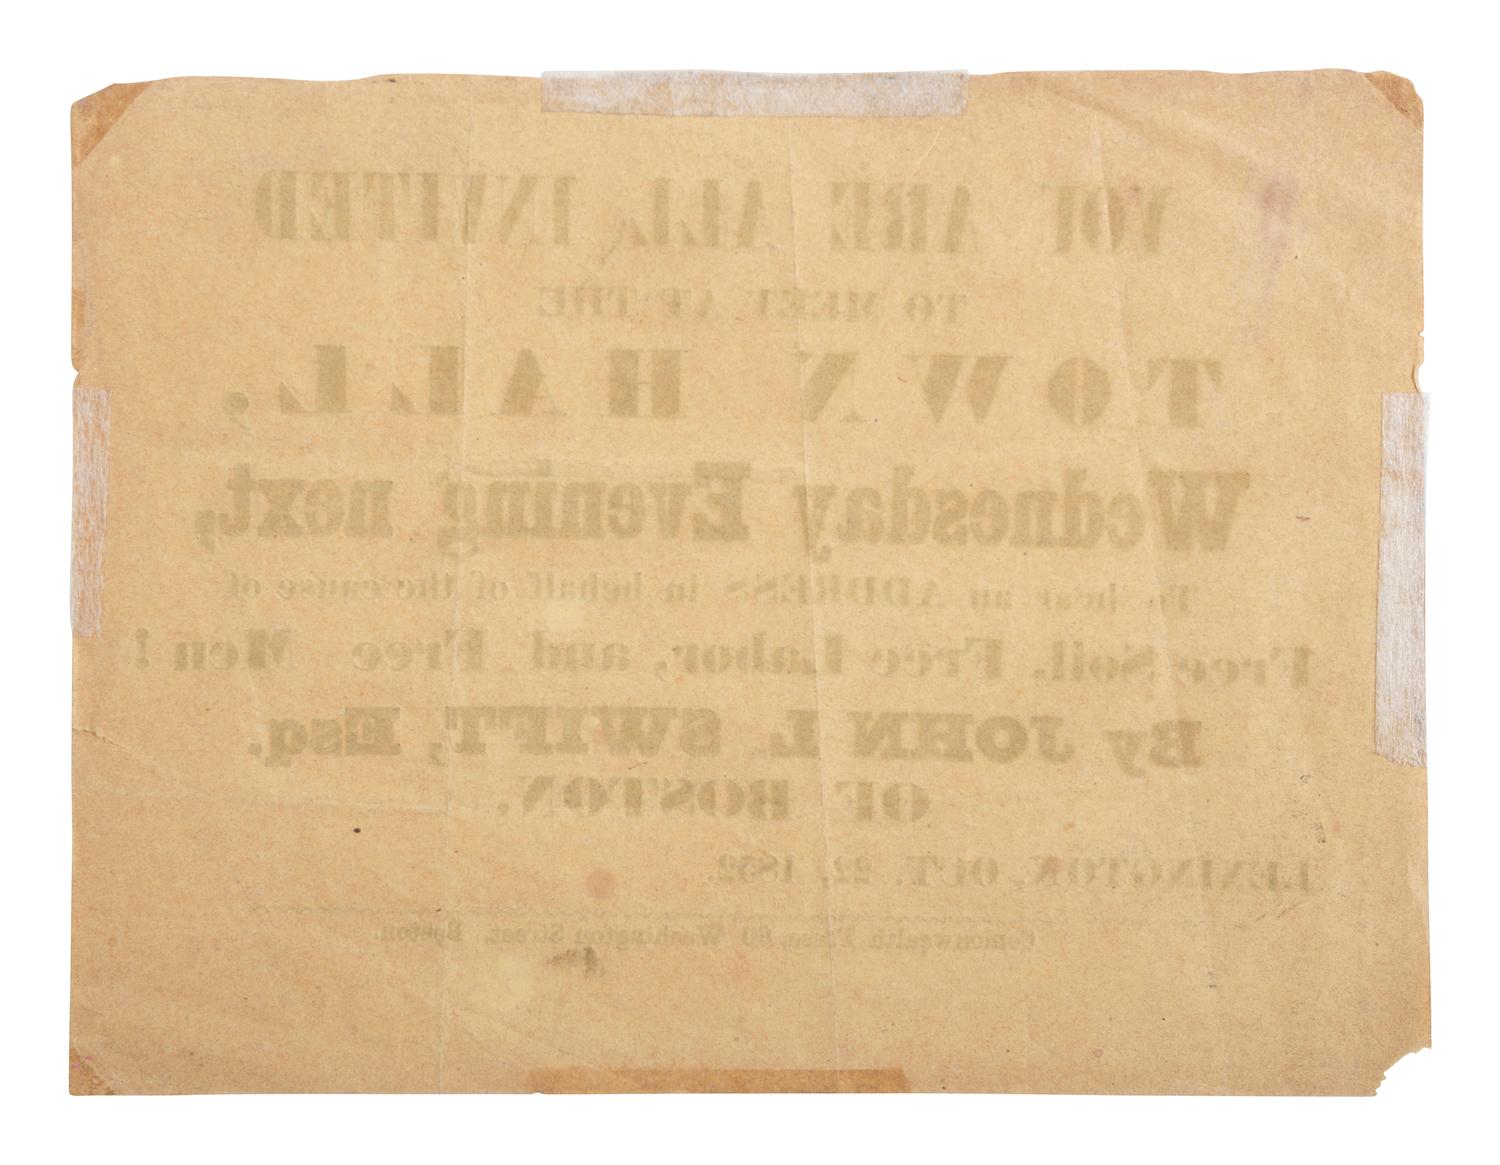 YOU ARE ALL INVITED
TO MEET AT THE
TOWN HALL,
Wednesday Evening next,
To hear an ADDRESS in behalf of the cause of
Free Soil, Free Labor, and Free Men!
By JOHN L SWIFT, Esq.
OF BOSTON.
LEXINGTON, OCT. 22, 1852.
Commonwealth Press, 60 Washington Street, Boston.